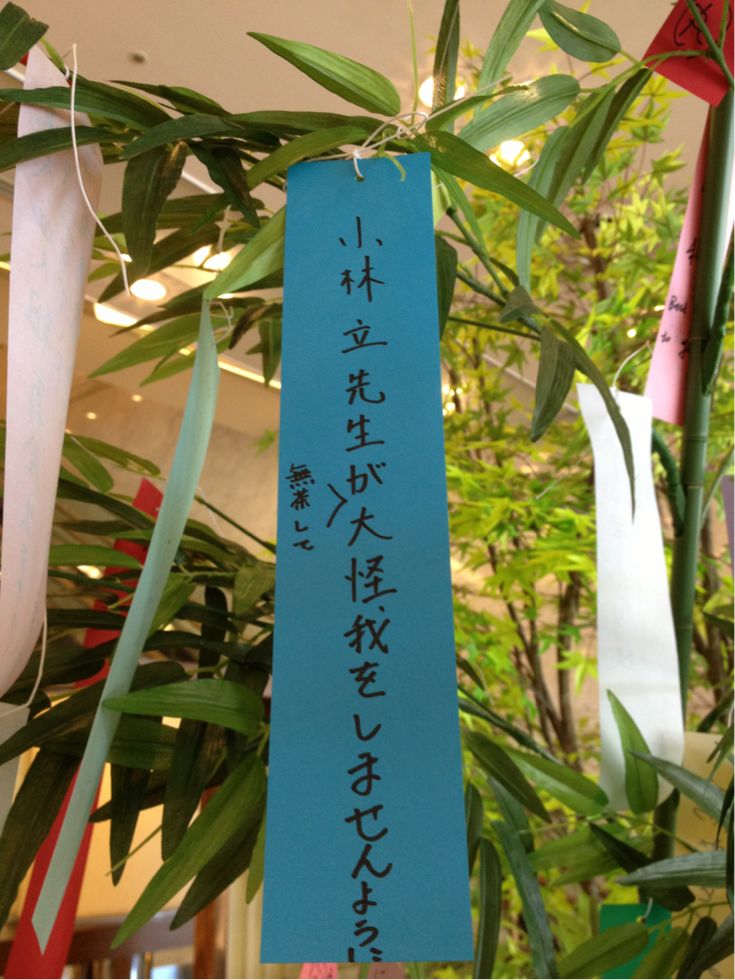 小林立先生が大怪我をしませんように
無茶して
Best
to